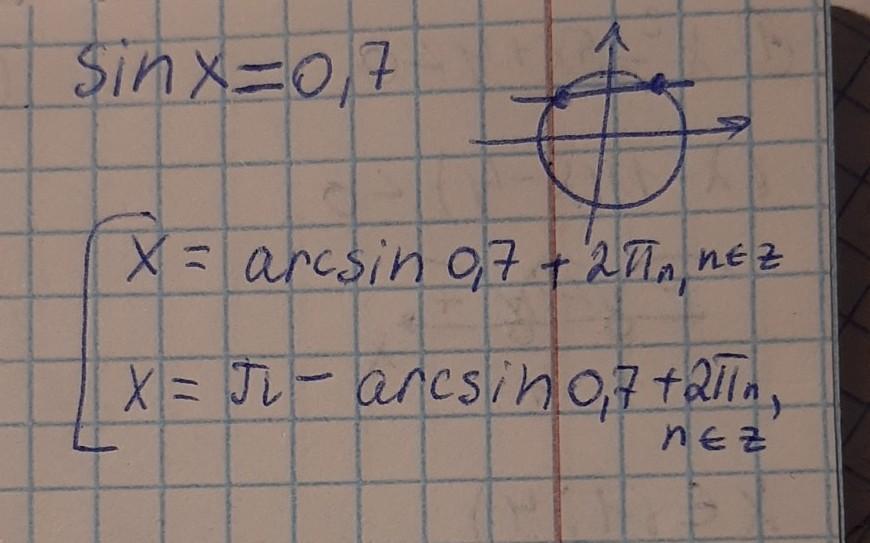 sin x = 0,7
x = arcsin 0,7 + 2πn, n ∈ z
x = π - arcsin 0,7 + 2πn,
n ∈ z